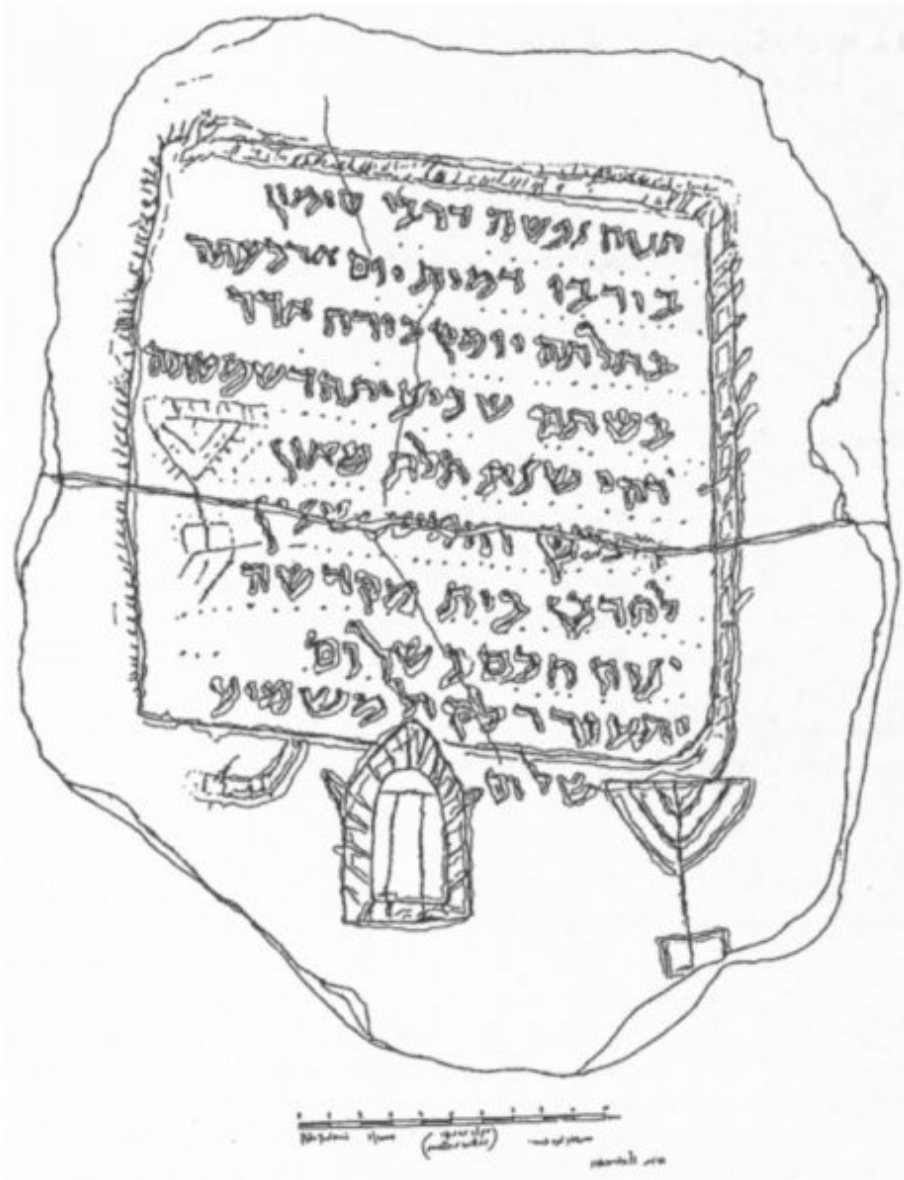 תנוח נפשה דרבי סימון
בירבי דמית יום ארבעתה
בתלתה יומין בירח אדר
בשתה שביעיתה דשמטתה
דהי שנת תלת מאון
לחרבן בית מקדשה
חלם בשלום
יתעורר לקול משמיע
שלום